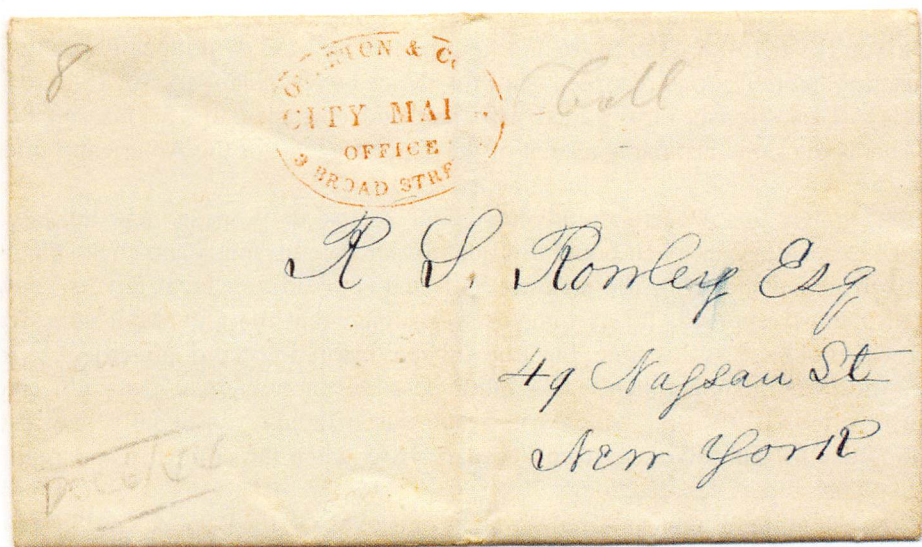 8
OVERTON & Co
CITY MAIL
OFFICE
3 BROAD STREE
R S. Rowley Esq
49 Nassau St
New York